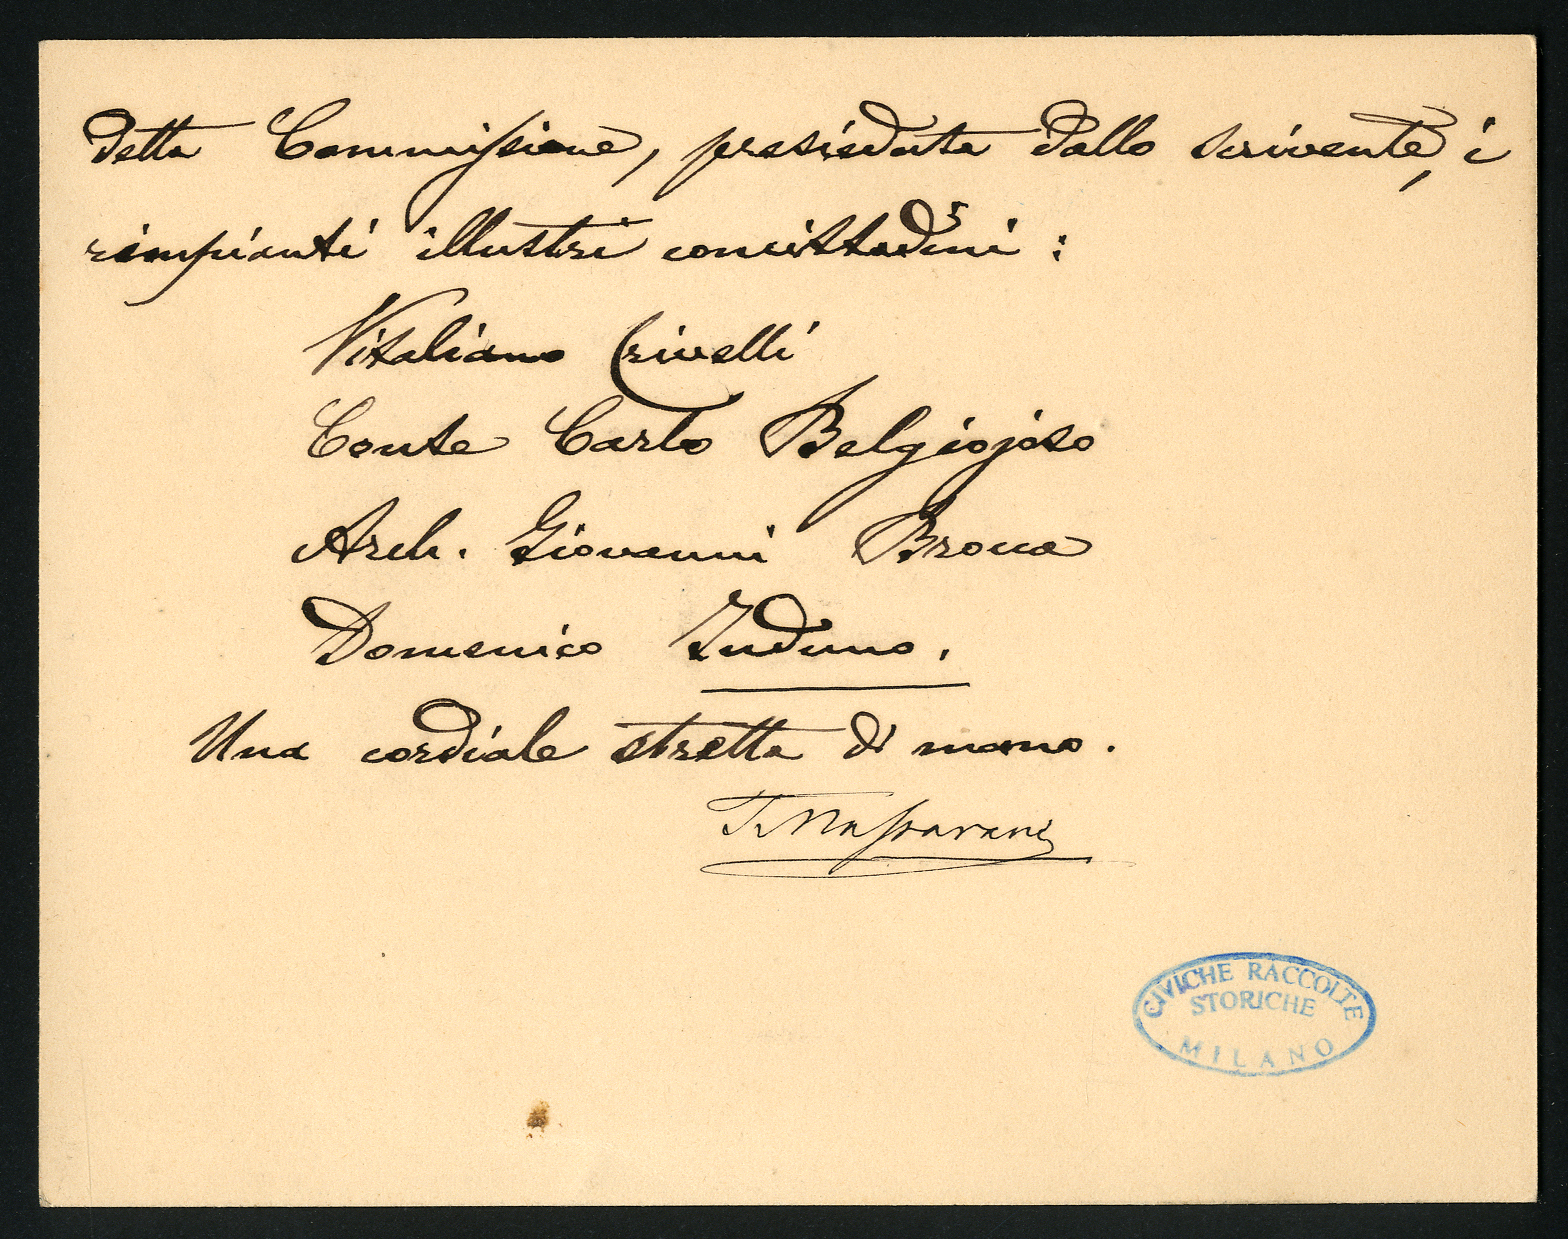 detta Commissione, presieduta dallo scrivente, i
rimpianti illustri concittadini :
Vitaliano Crivelli
Conte Carlo Belgiojoso
Arch. Giovanni Brocca
Domenico Induno.
Una cordiale stretta di mano.
T. Massarani
CIVICHE RACCOLTE
STORICHE
MILANO